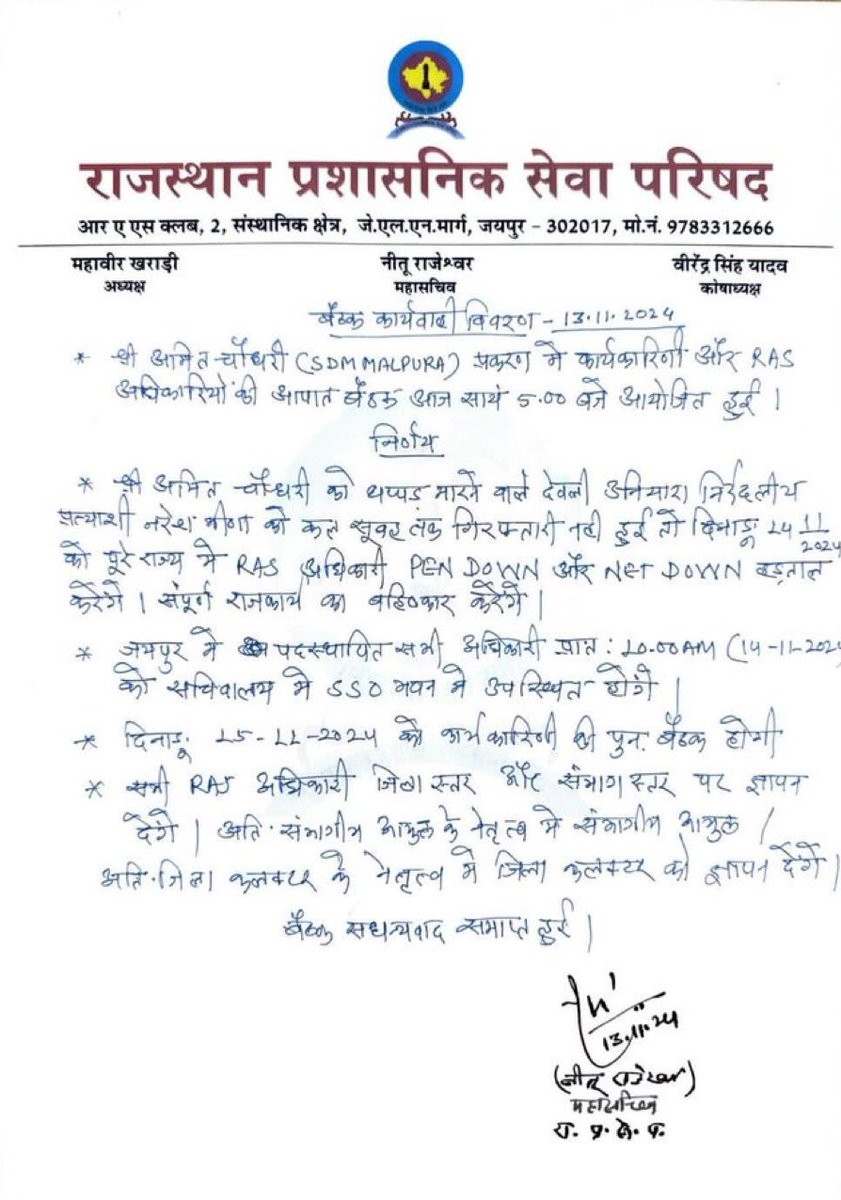 राजस्थान प्रशासनिक सेवा परिषद
आर ए एस क्लब, 2, संस्थानिक क्षेत्र, जे.एल.एन.मार्ग, जयपुर - 302017, मो.नं. 9783312666
महावीर खराड़ी नीतू राजेश्वर वीरेंद्र सिंह यादव
अध्यक्ष महासचिव कोषाध्यक्ष
बैठक कार्यवाही विवरण - 13.11.2024
* श्री अमित चौधरी (SDM MALPURA) प्रकरण में कार्यकारिणी और RAS
अधिकारियों की आपात बैठक आज सायं 5.00 बजे आयोजित हुई।
निर्णय
* श्री अमित चौधरी को थप्पड़ मारने वाले देवली उनियारा निर्दलीय
प्रत्याशी नरेश मीणा को कल सुबह तक गिरफ्तारी नही हुई तो दिनाङ्क 14 11
2024
को पूरे राज्य मे RAS अधिकारी PEN DOWN और NET DOWN हड़ताल
करेंगे। संपूर्ण राजकार्य का बहिष्कार करेंगे।
* जयपुर मे पदस्थापित सभी अधिकारी प्रात: 10.00AM (14-11-2024
को सचिवालय मे SSO भवन मे उपस्थित होंगे।
* दिनाङ्क 15-11-2024 को कार्यकारिणी की पुन: बैठक होगी
* सभी RAS अधिकारी जिला स्तर और संभाग स्तर पर ज्ञापन
देंगे। अति. संभागीय आयुक्त के नेतृत्व मे संभागीय आयुक्त /
अति.जिला कलक्टर के नेतृत्व मे जिला कलक्टर को ज्ञापन देंगे।
बैठक सधन्यवाद समाप्त हुई।
13.11.24
(नीतू राजेश्वर)
महासचिव
रा. प्र. से. प.